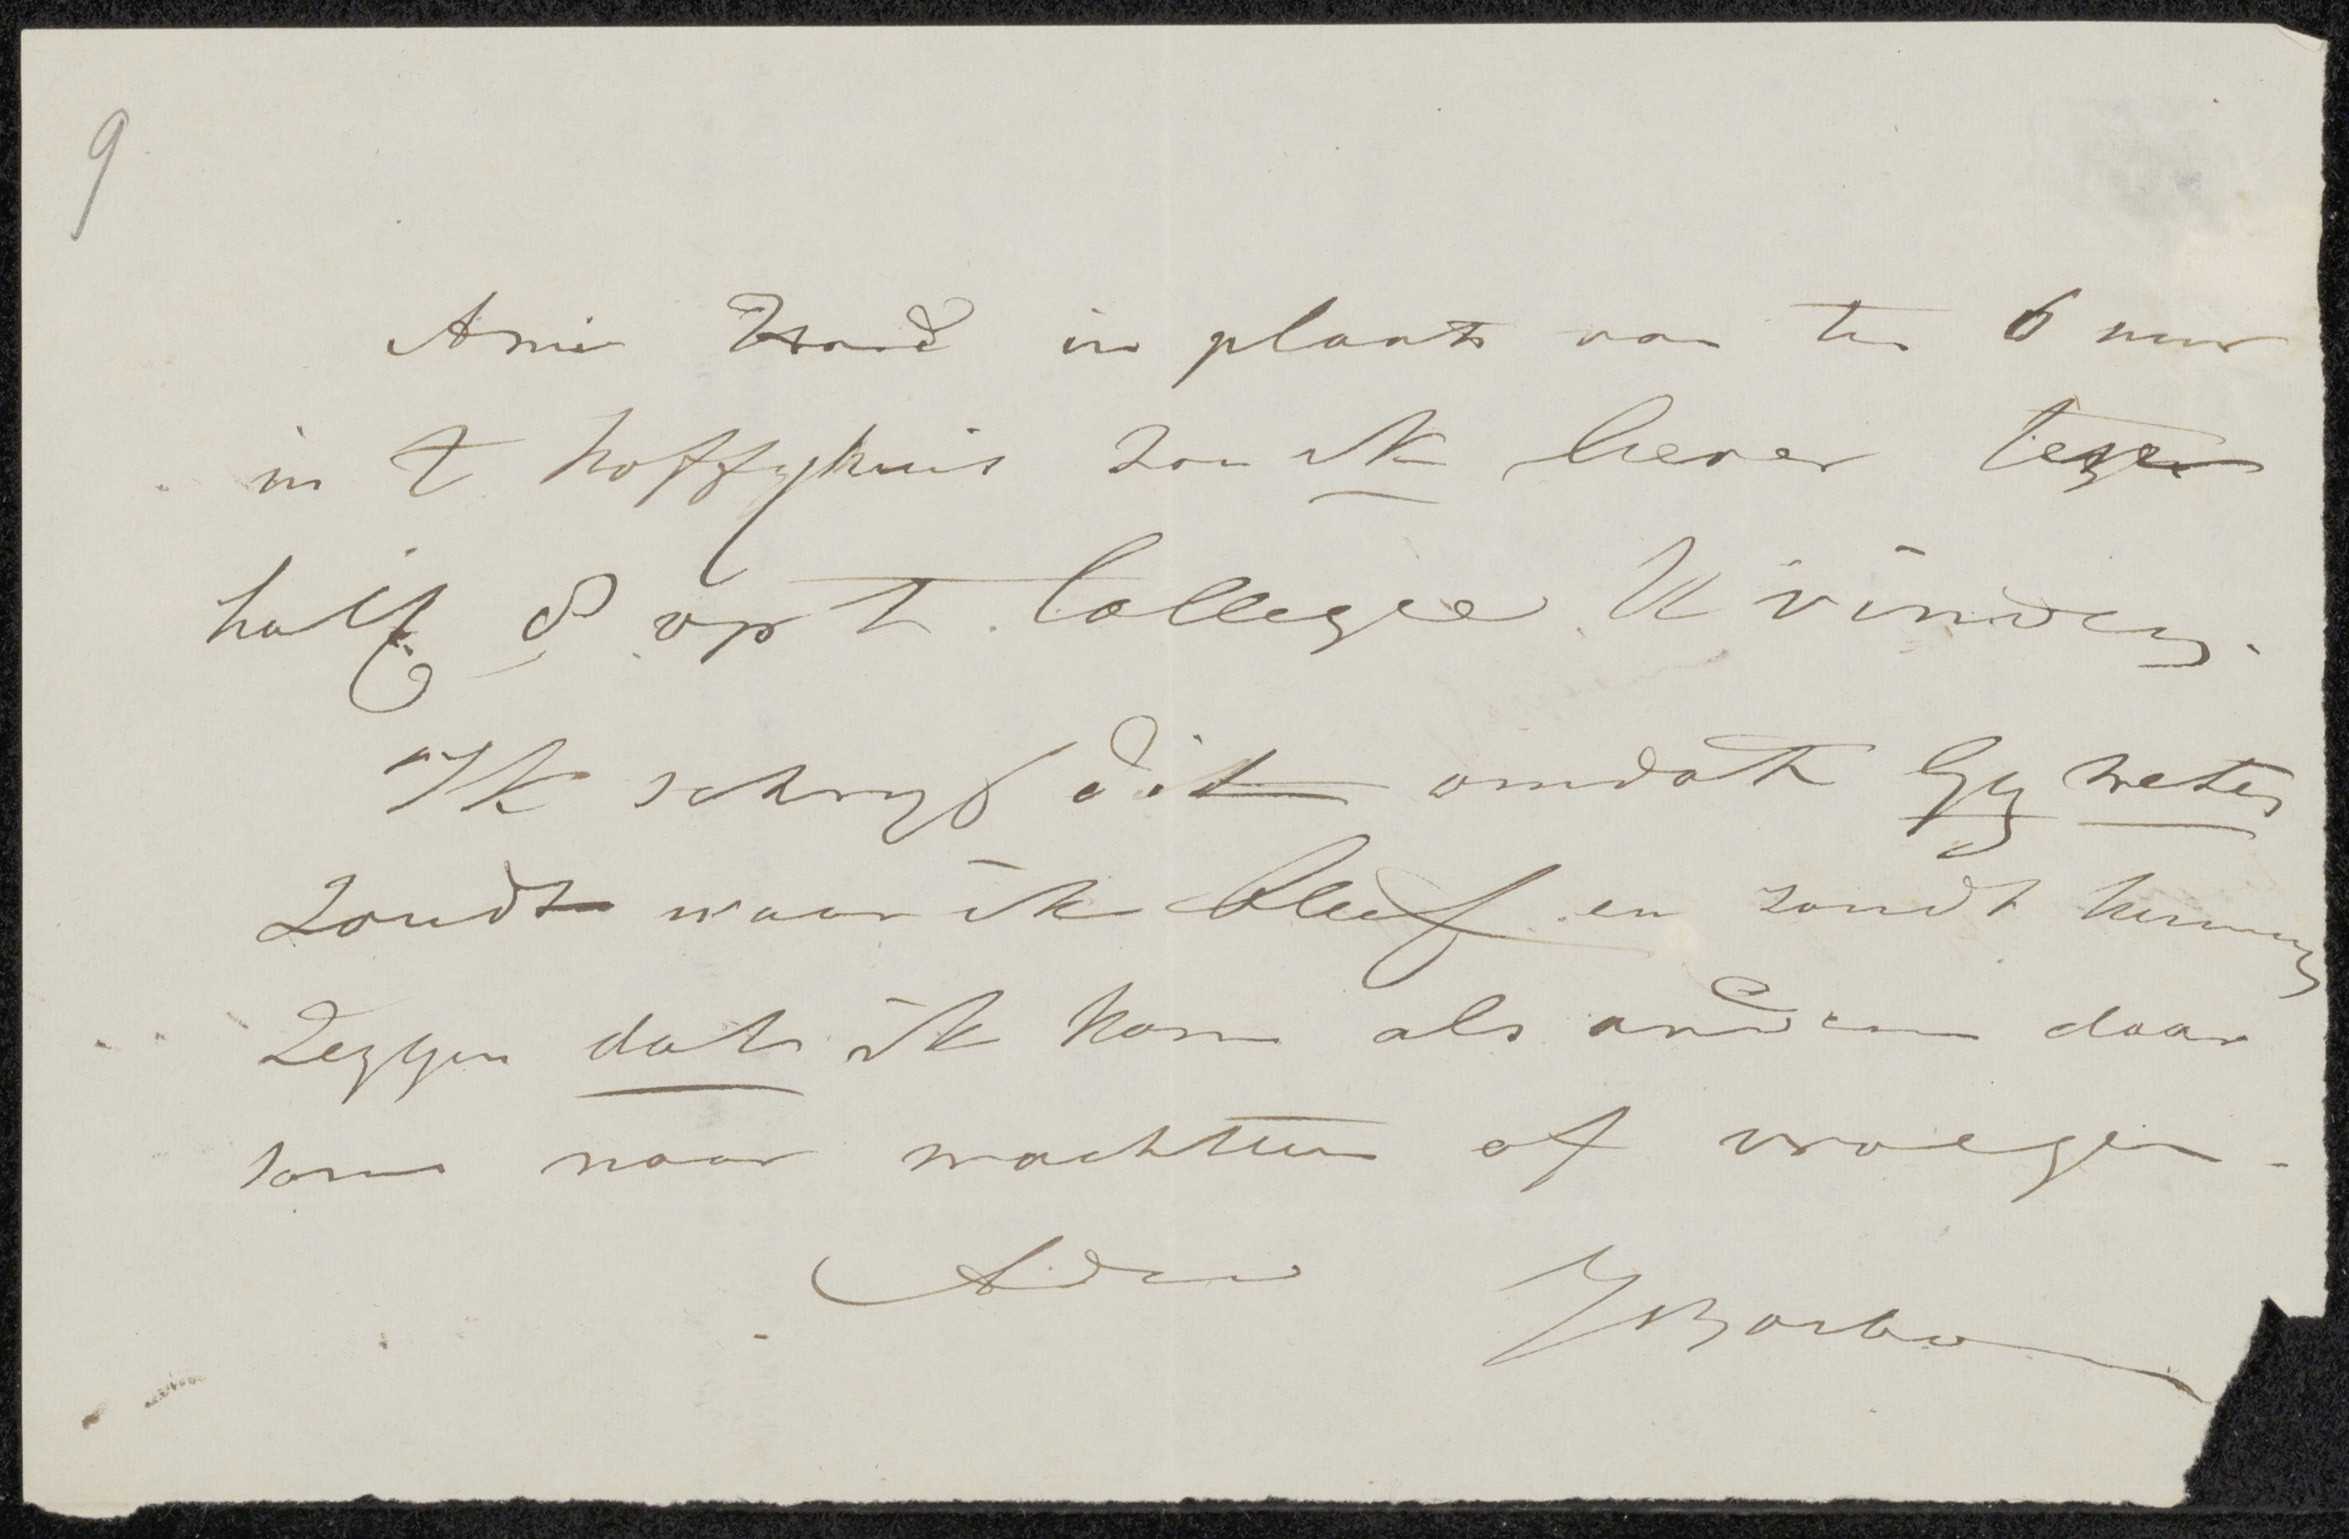 9
Ami in plaats van te 6 uur
in t koffyhuis zou ik liever tegen
half 8 op t Collegie U vinden.
Ik schryf dit omdat Gy weten
zoudt waar ik bleef en zoudt kunnen
zeggen dat ik kom als anderen daar
soms naar wachtten of vroegen.
Adieu JBosboom